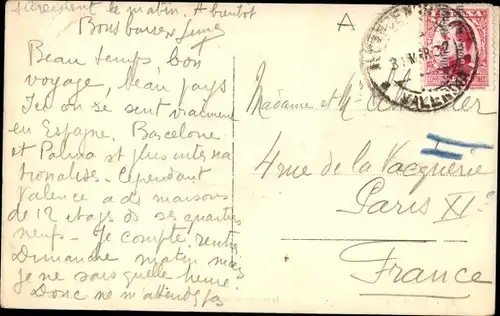 le matin. A bientôt
Bons baisers
Beau temps bon
voyage, beau pays
Ici on se sent vraiment
en Espagne. Barcelone
et Palma st plus interna
tionalisés. Cependant
Valence a des maisons
de 12 étages ds ses quartiers
neufs - Je compte rentrer
Dimanche matin mais
je ne sais quelle heure.
Donc ne m'attendez pas
A
Madame et Mr
4 rue de la Vacquerie
Paris XIe
France